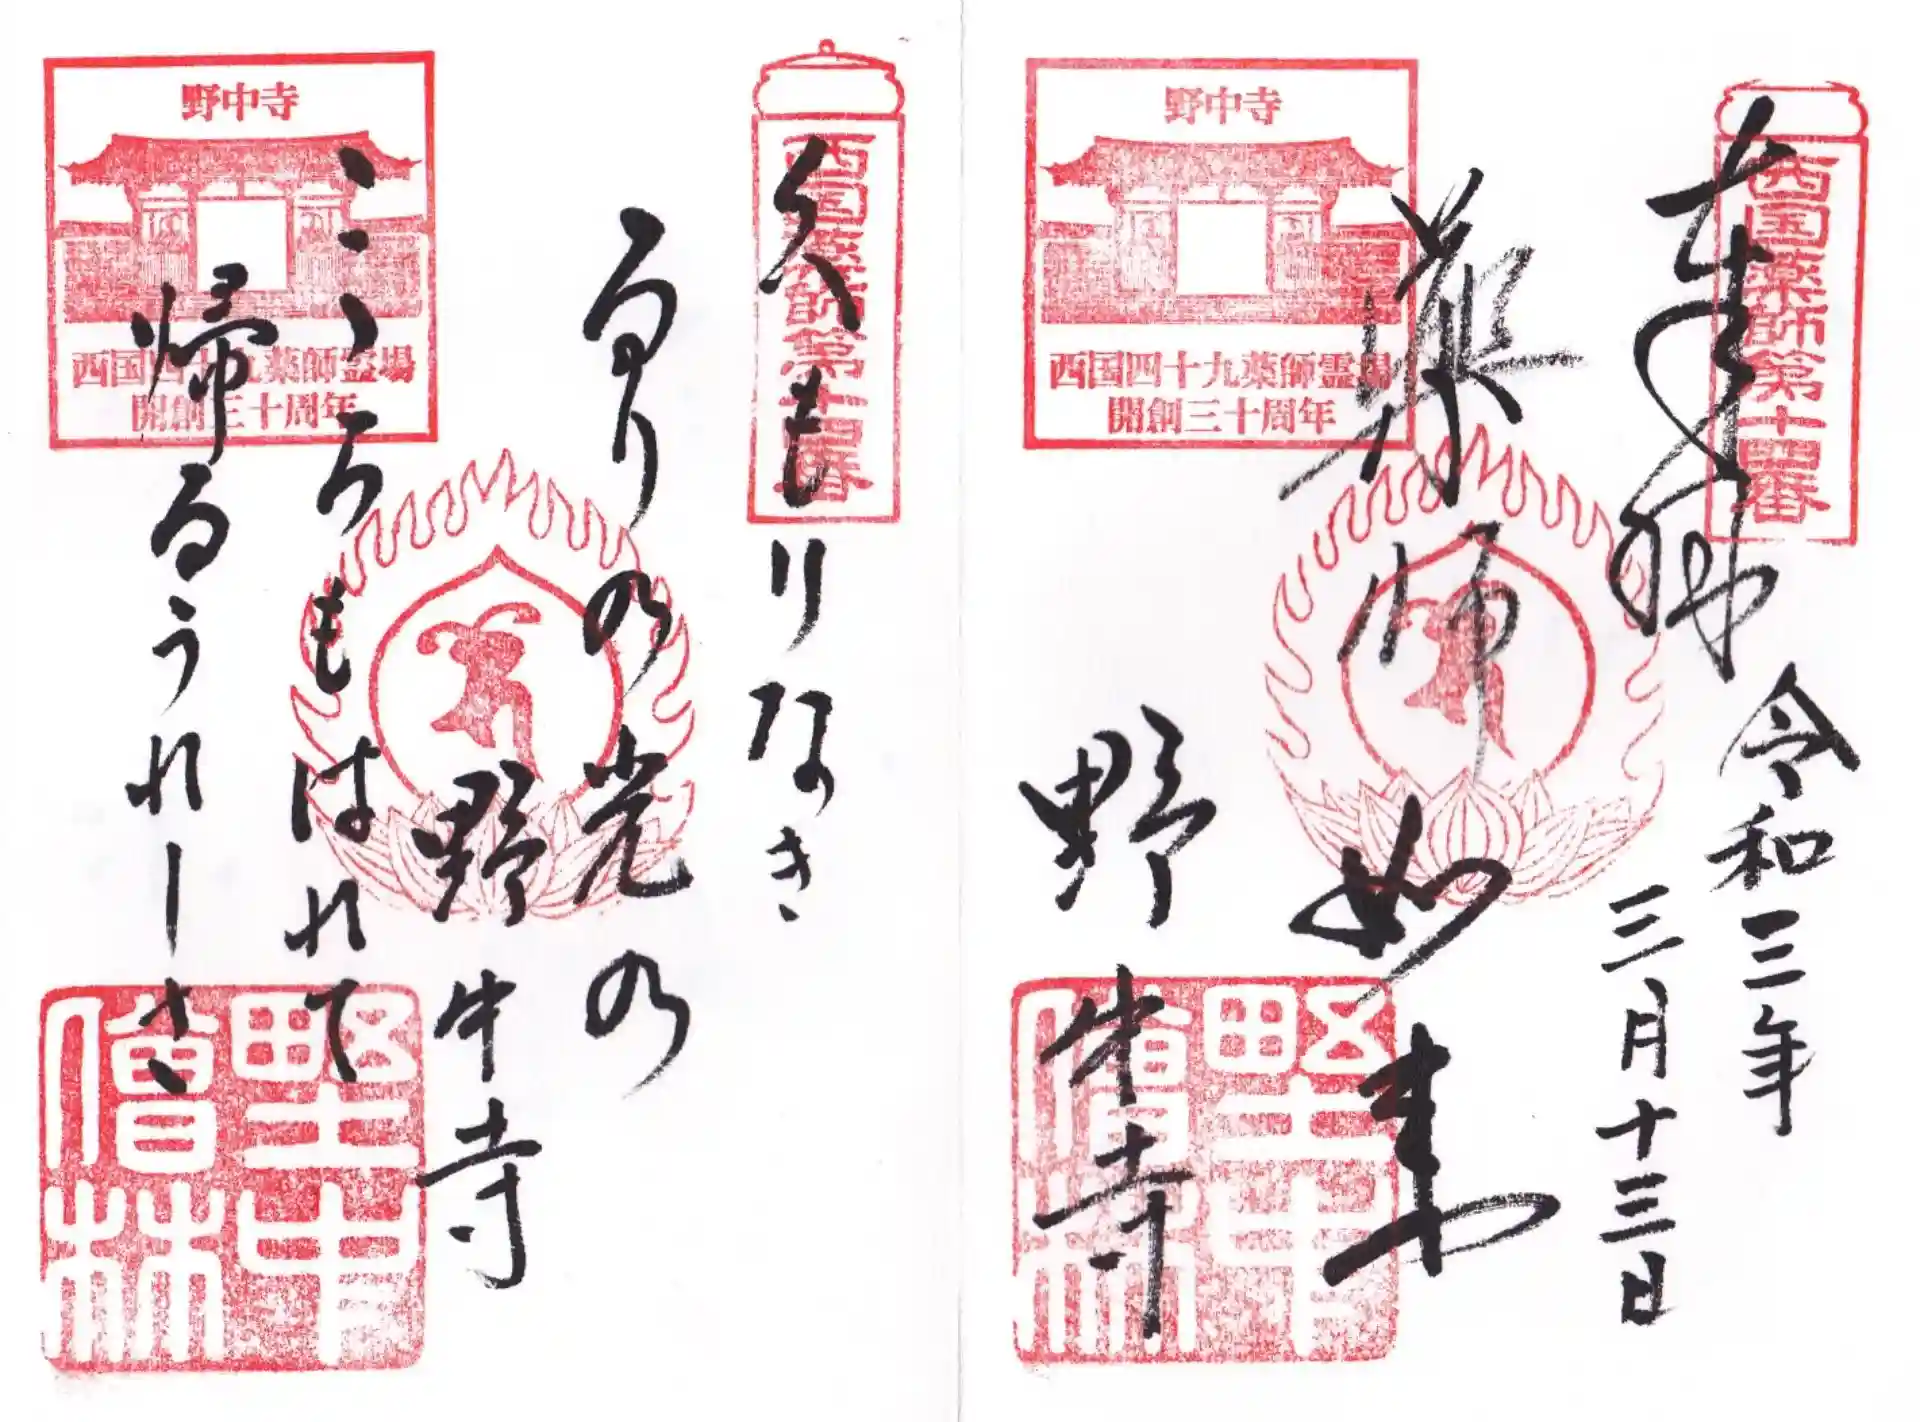 西国薬師第十四番
奉拝
令和三年
三月十三日
薬師如来
野中寺
野中寺
西国四十九薬師霊場
開創三十周年
野中僧林
西国薬師第十四番
久もりなき
るりの光の
こゝろもはれて
帰るうれしさ
野中寺
野中寺
西国四十九薬師霊場
開創三十周年
野中僧林